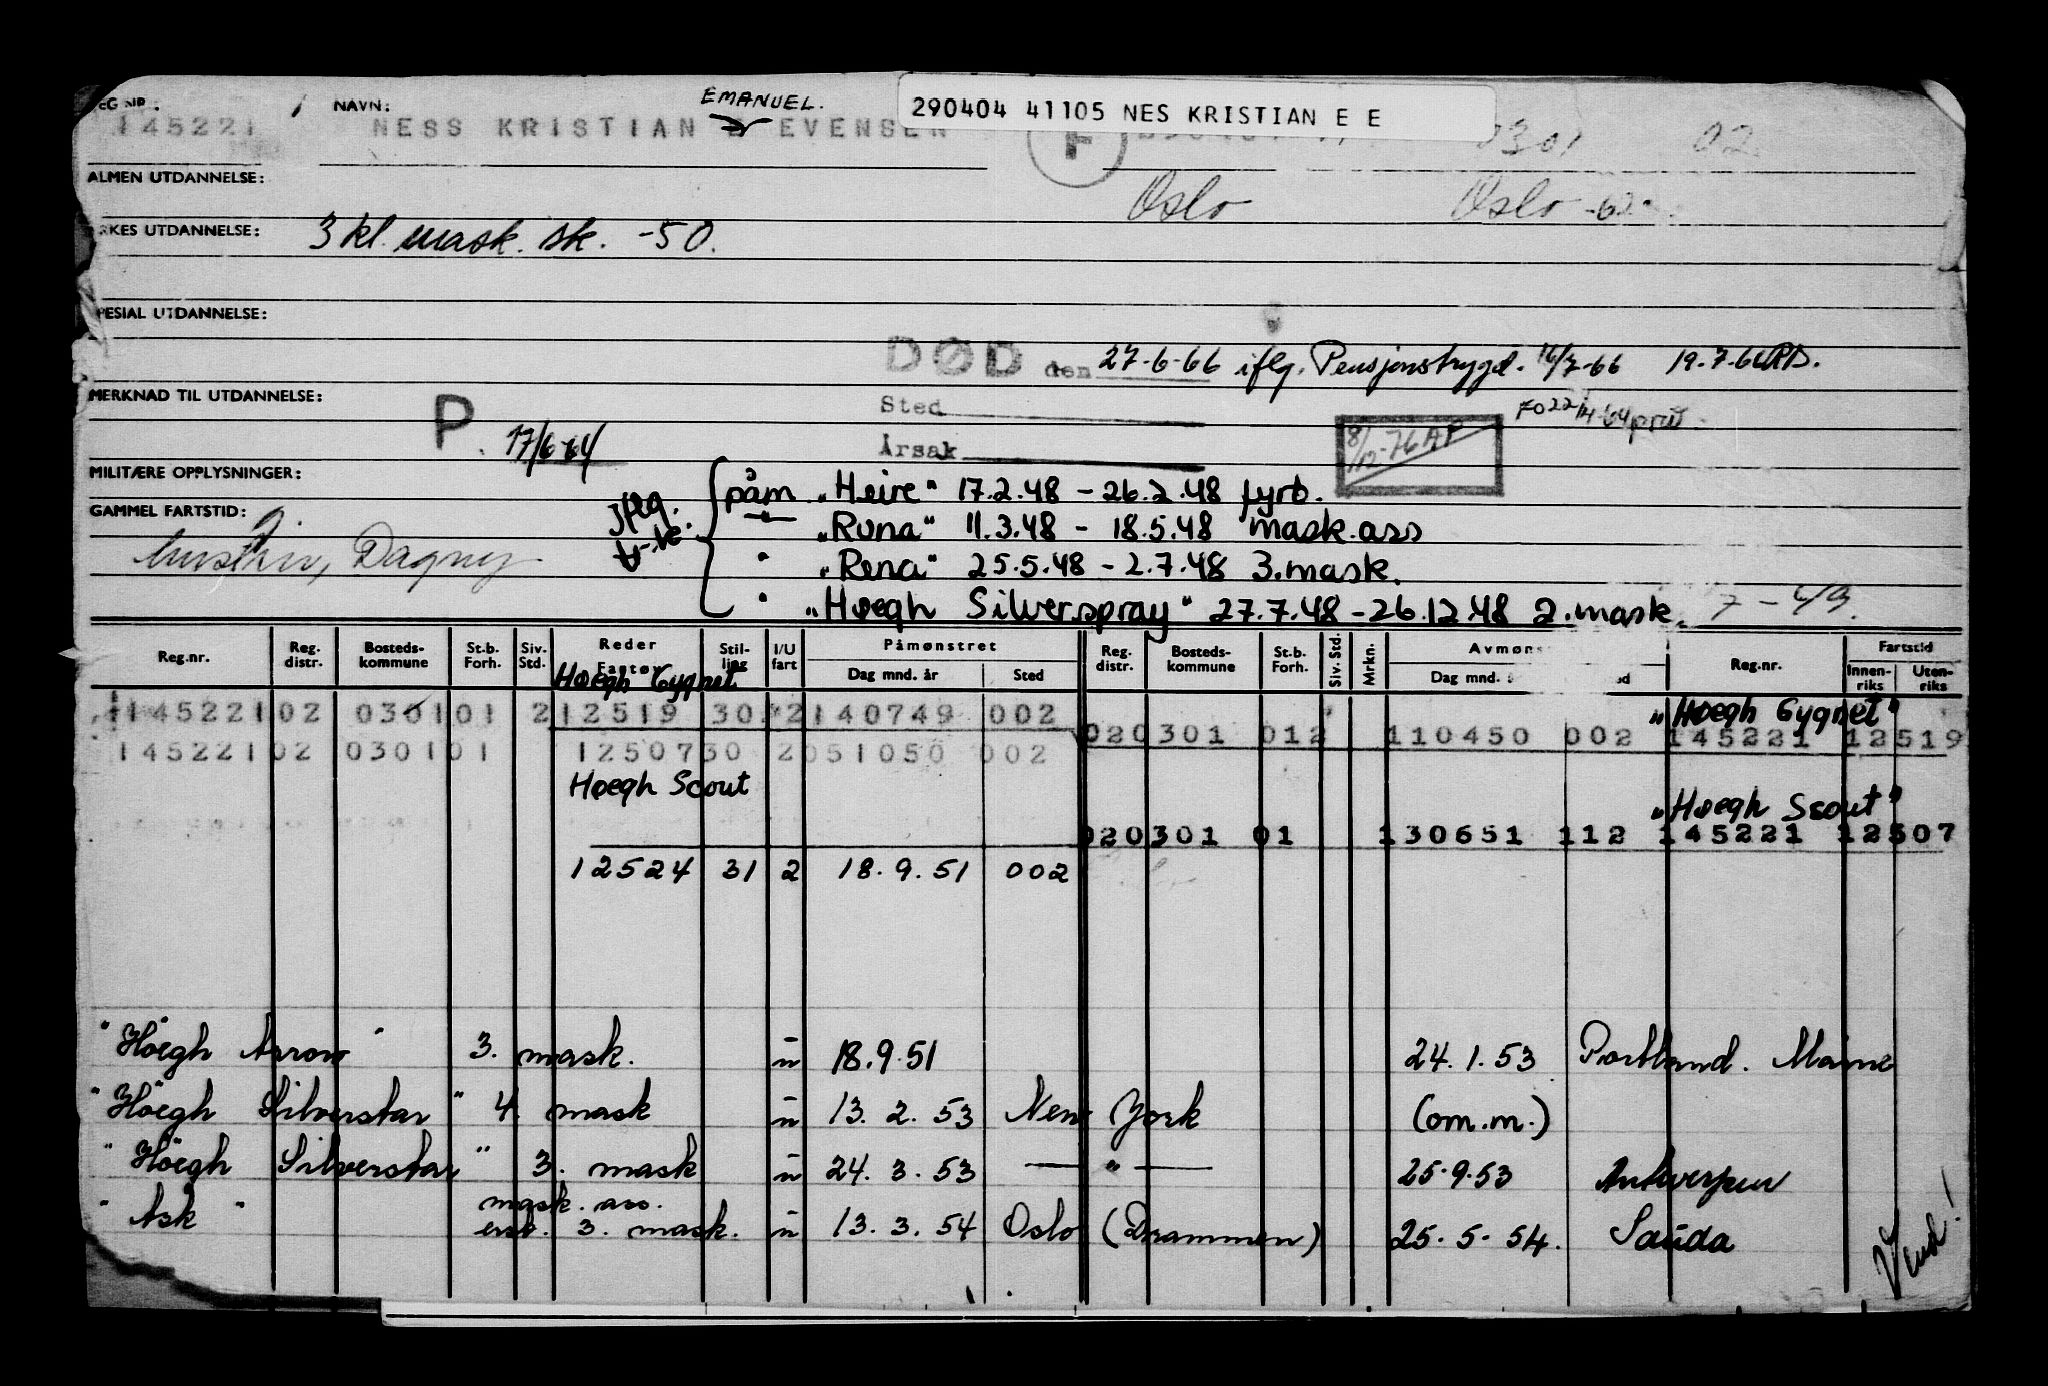 EMANUEL.
290404 41105 NES KRISTIAN E E
NAVN:
145221 NESS KRISTIAN E EVENSEN F 0301 02
ALMEN UTDANNELSE: Oslo Oslo -62
RKES UTDANNELSE: 3 kl. mask. sk. -50.
PESIAL UTDANNELSE:
DØD den 27-6-66 iflg. Pensjonstrygd. 16/7-66 19.7.66
MERKNAD TIL UTDANNELSE: P. 17/6-64
Sted
Årsak
8/12-76 AP
MILITÆRE OPPLYSNINGER:
påm "Heire" 17.2.48 - 26.2.48 fyrb.
GAMMEL FARTSTID:
" "Runa" 11.3.48 - 18.5.48 mask.ass
Dagny
" "Rena" 25.5.48 - 2.7.48 3.mask.
" "Høegh Silverspray" 27.7.48 - 26.12.48 2.mask. 7-49.
Reg.nr. Reg. distr. Bosteds-kommune St.b. Forh. Siv. Std. Reder Fartøy Stil-ling I/U fart Påmønstret Dag mnd. år Sted Reg. distr. Bosteds-kommune St.b. Forh. Siv. Std. Mrkn. Avmøns Dag mnd. Reg.nr. Fartstid Innen-riks Uten-riks
Høegh Cygnet
145221 02 0301 01 2 12519 30 2 140749 002
"Høegh Cygnet"
020301 012 110450 002 145221 12519
145221 02 0301 01 12507 30 2 051050 002
Høegh Scout
"Høegh Scout"
020301 01 130651 112 145221 12507
12524 31 2 18.9.51 002
"Höegh Arrow" 3. mask. u 18.9.51 24.1.53 Portland. Maine
"Höegh Silverstar" 4. mask u 13.2.53 New York (om.m.)
"Höegh Silverstar" 3. mask u 24.3.53 — " — 25.9.53 Antwerpen
mask. ass.
"Ask" erst. 3. mask. u 13.3.54 Oslo (Drammen) 25.5.54. Sauda
Vend!